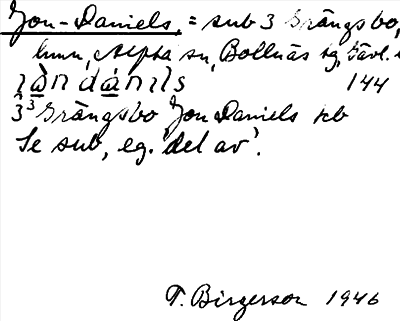 Jon-Daniels = sub 3 Grängsbo,
hmn, Alfta sn, Bollnäs tg, Gävl. l
144
3³ Grängsbo Jon Daniels jrb
Se sub, eg. 'del av'.
T. Birgerson 1946